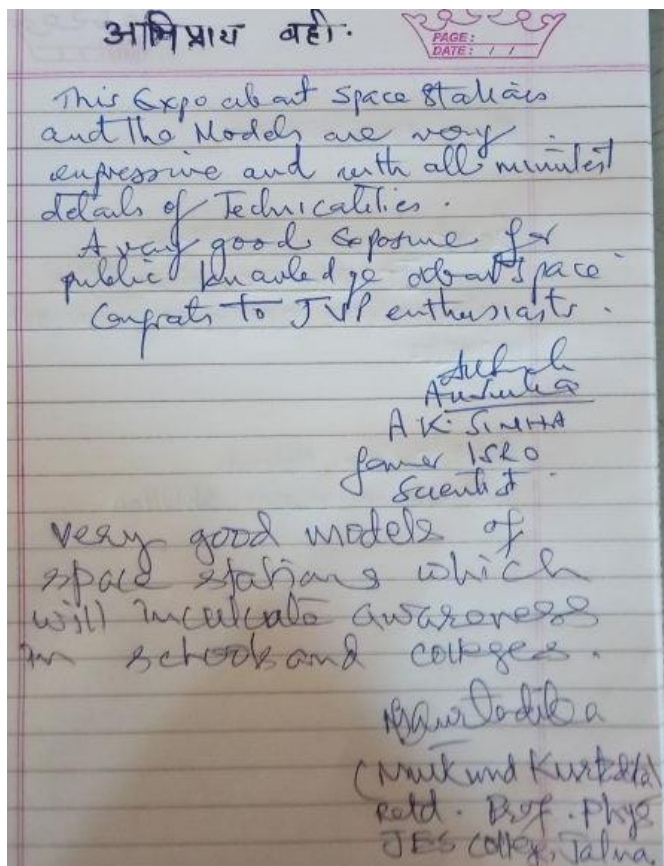 अभिप्राय वही.
PAGE:
DATE: / /
This Expo about Space Stations
and the Models are very
expressive and with all minutest
details of Technicalities.
A very good exposure for
public knowledge about space
Congrats to JVP enthusiasts.
A K. SINHA
former ISRO
Scientist
very good models of
space stations which
will inculcate awareness
in schools and colleges.
(Mukund
Retd. Prof. Phys
JES College, Jalna